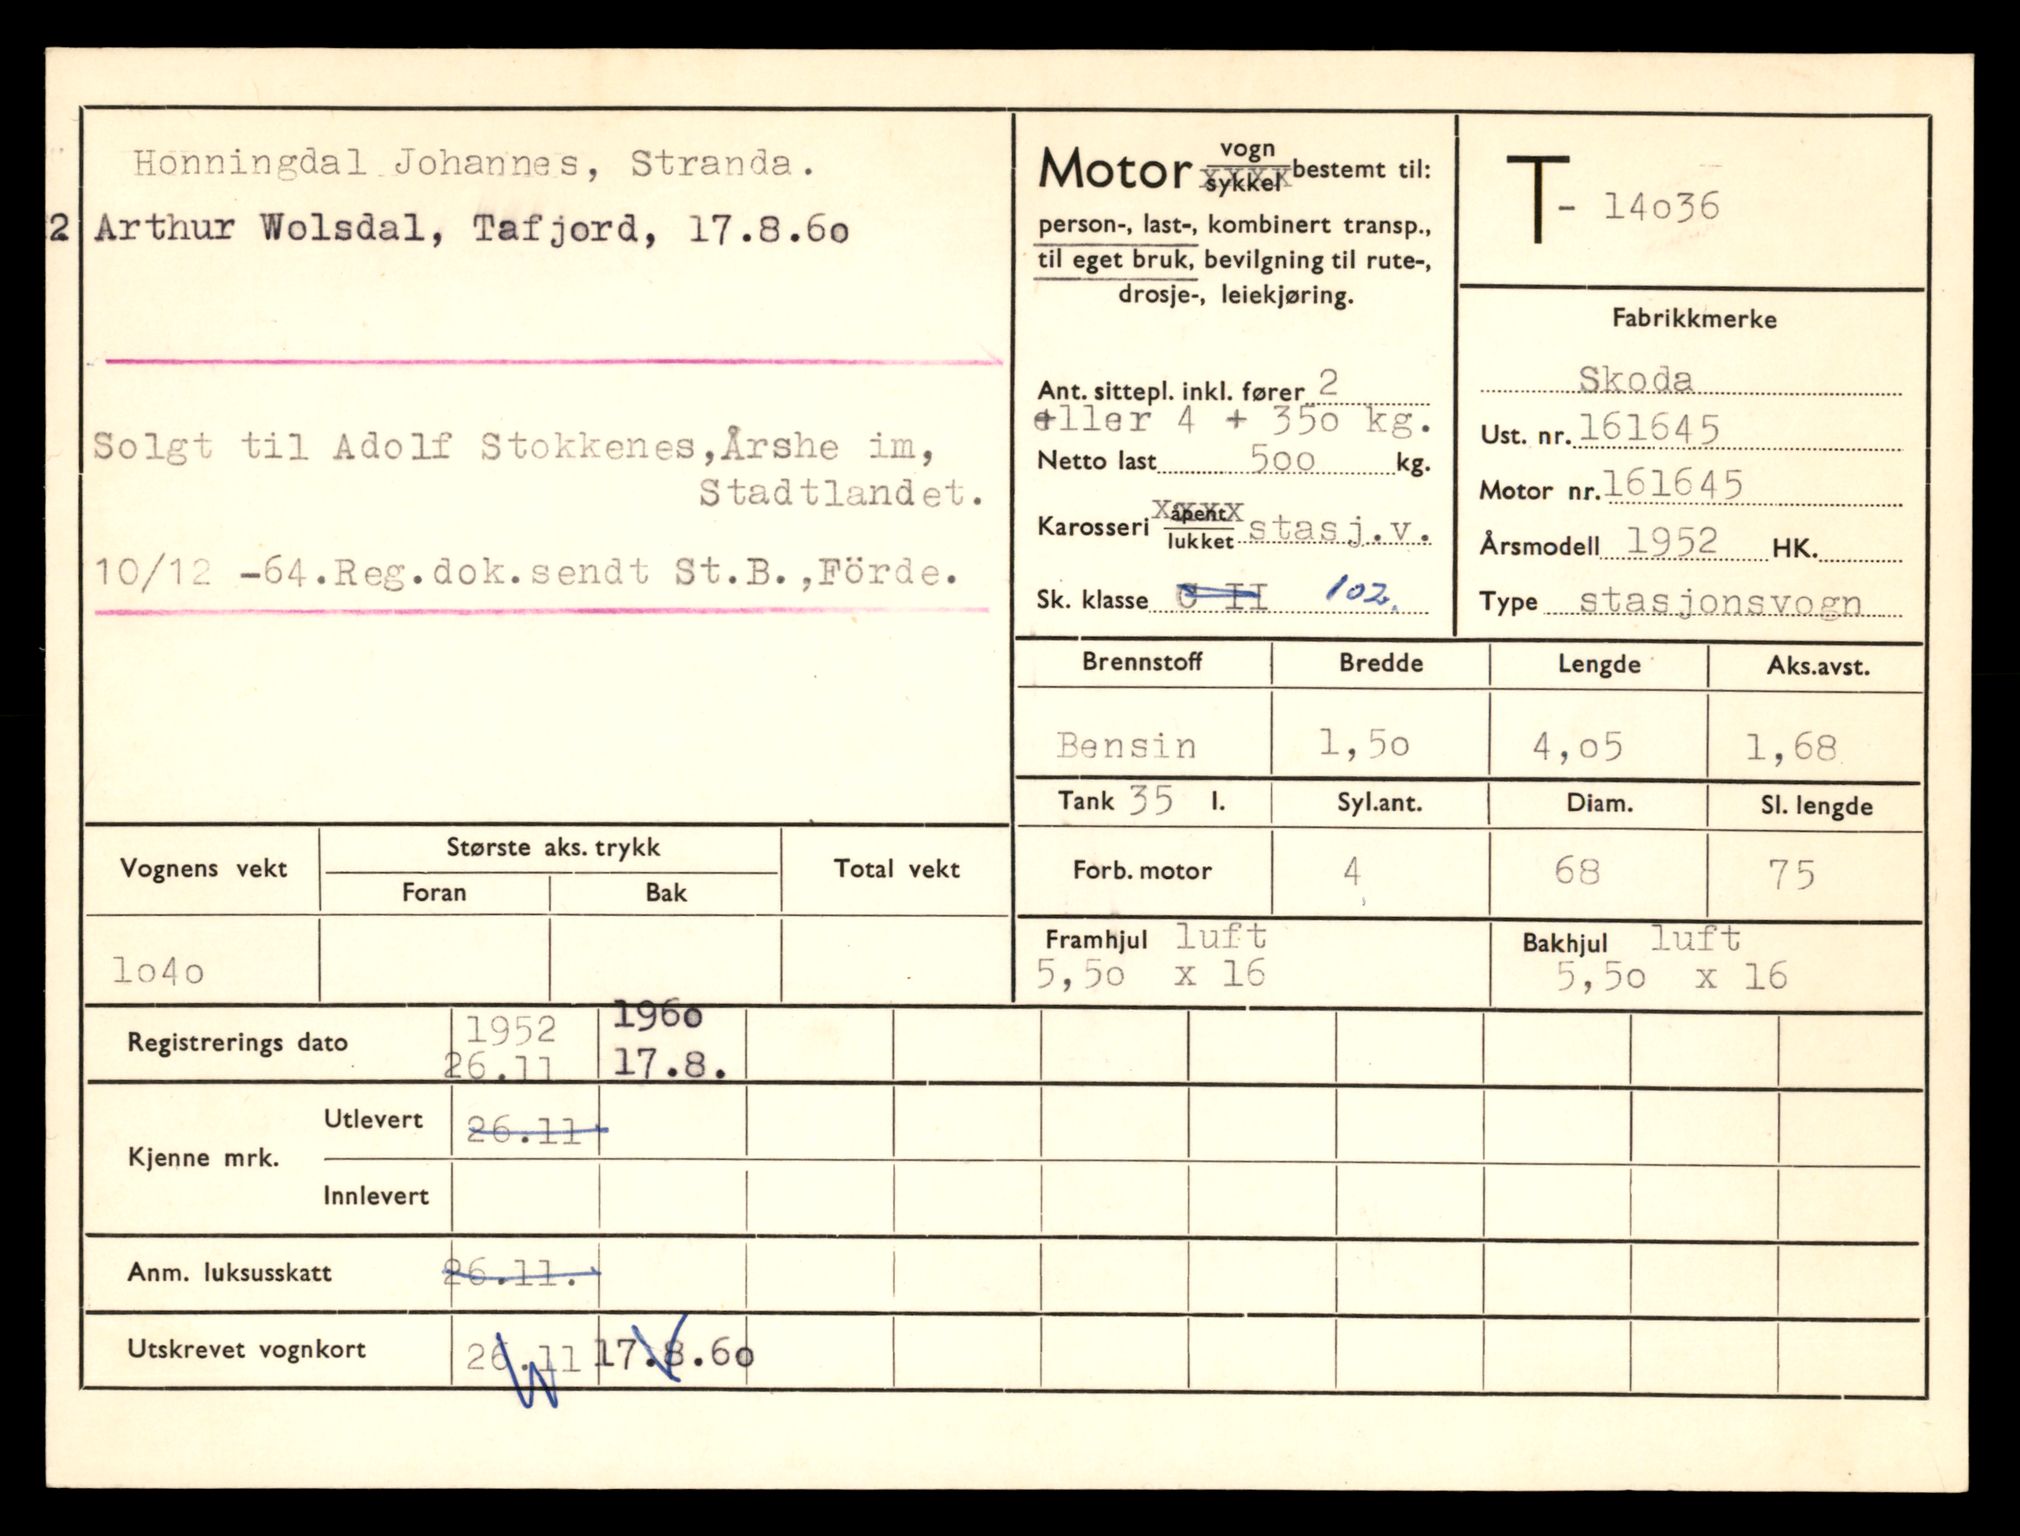 Honningdal Johannes, Stranda.
2 Arthur Wolsdal, Tafjord, 17.8.6o
Solgt til Adolf Stokkenes, Årshe im,
Stadtlandet.
10/12 -64. Reg.dok.sendt St.B., Förde.
Motor vogn sykkel bestemt til:
person-, last-, kombinert transp.,
til eget bruk, bevilgning til rute-,
drosje-, leiekjøring.
Ant. sittepl. inkl. fører 2
eller 4 + 35o kg.
Netto last 5oo kg.
Karosseri åpent lukket stasj.v.
Sk. klasse C II 102.
T- 14o36
Fabrikkmerke
Skoda
Ust. nr. 161645
Motor nr. 161645
Årsmodell 1952 HK.
Type stasjonsvogn
Brennstoff Bredde Lengde Aks.avst.
Bensin 1,5o 4,o5 1,68
Tank 35 l. Syl.ant. Diam. Sl. lengde
Forb. motor 4 68 75
Framhjul luft Bakhjul luft
5,5o x 16 5,5o x 16
Vognens vekt Største aks. trykk Total vekt
Foran Bak
1o4o
Registrerings dato 1952 196o
26.11 17.8.
Kjenne mrk. Utlevert 26.11
Innlevert
Anm. luksusskatt 26.11.
Utskrevet vognkort 26.11 17.8.6o